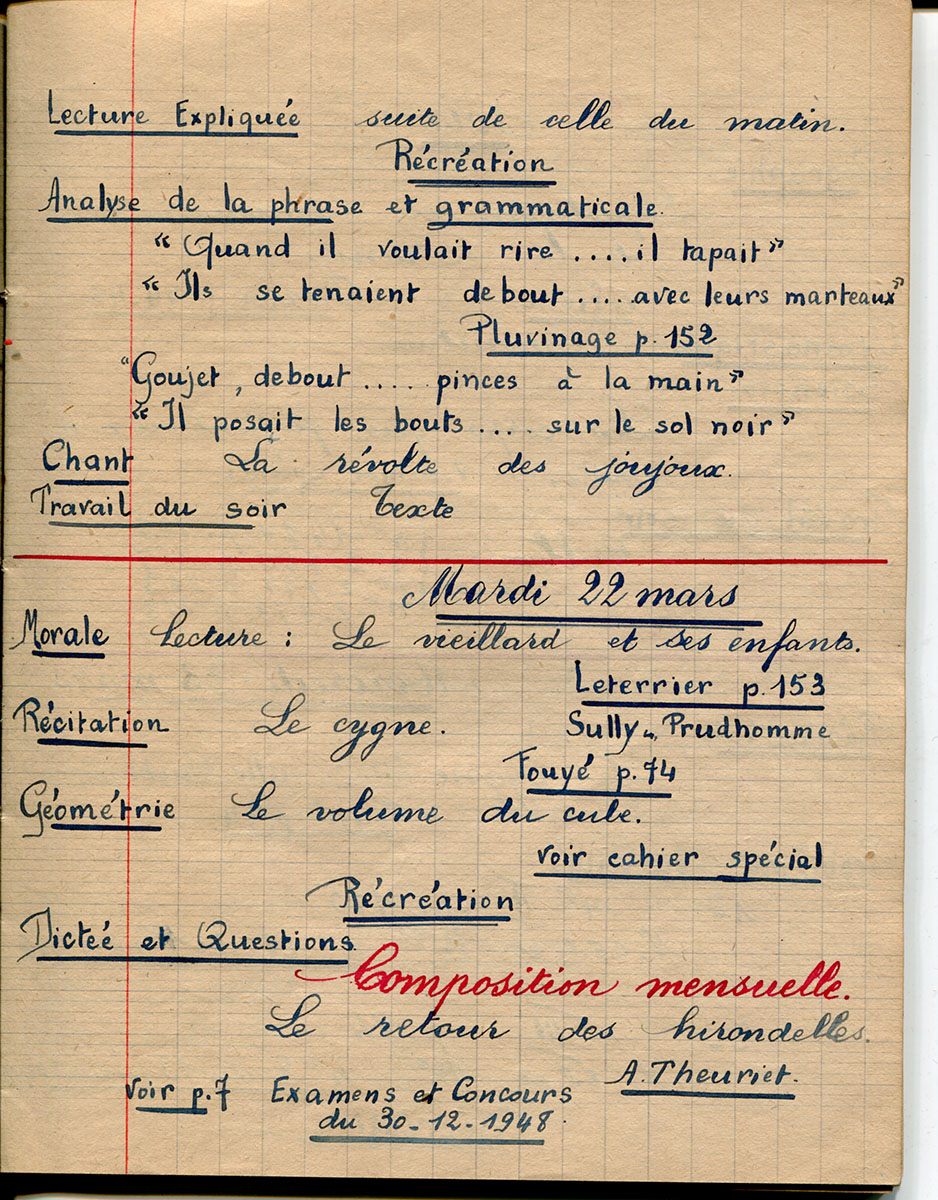 Lecture Expliquée suite de celle du matin.
Récréation
Analyse de la phrase et grammaticale.
"Quand il voulait rire ....il tapait"
"Ils se tenaient debout ....avec leurs marteaux"
Pluvinage p.152
"Goujet, debout .... pinces à la main"
"Il posait les bouts .... sur le sol noir"
Chant La révolte des joujoux.
Travail du soir Texte
Mardi 22 mars
Morale Lecture : Le vieillard et ses enfants.
Leterrier p.153
Récitation Le cygne. Sully-Prudhomme
Fouyé p.74
Géométrie Le volume du cube.
voir cahier spécial
Récréation
Dicteé et Questions.
Composition mensuelle.
Le retour des hirondelles.
A.Theuriet.
voir p.7 Examens et Concours
du 30-12-1948.